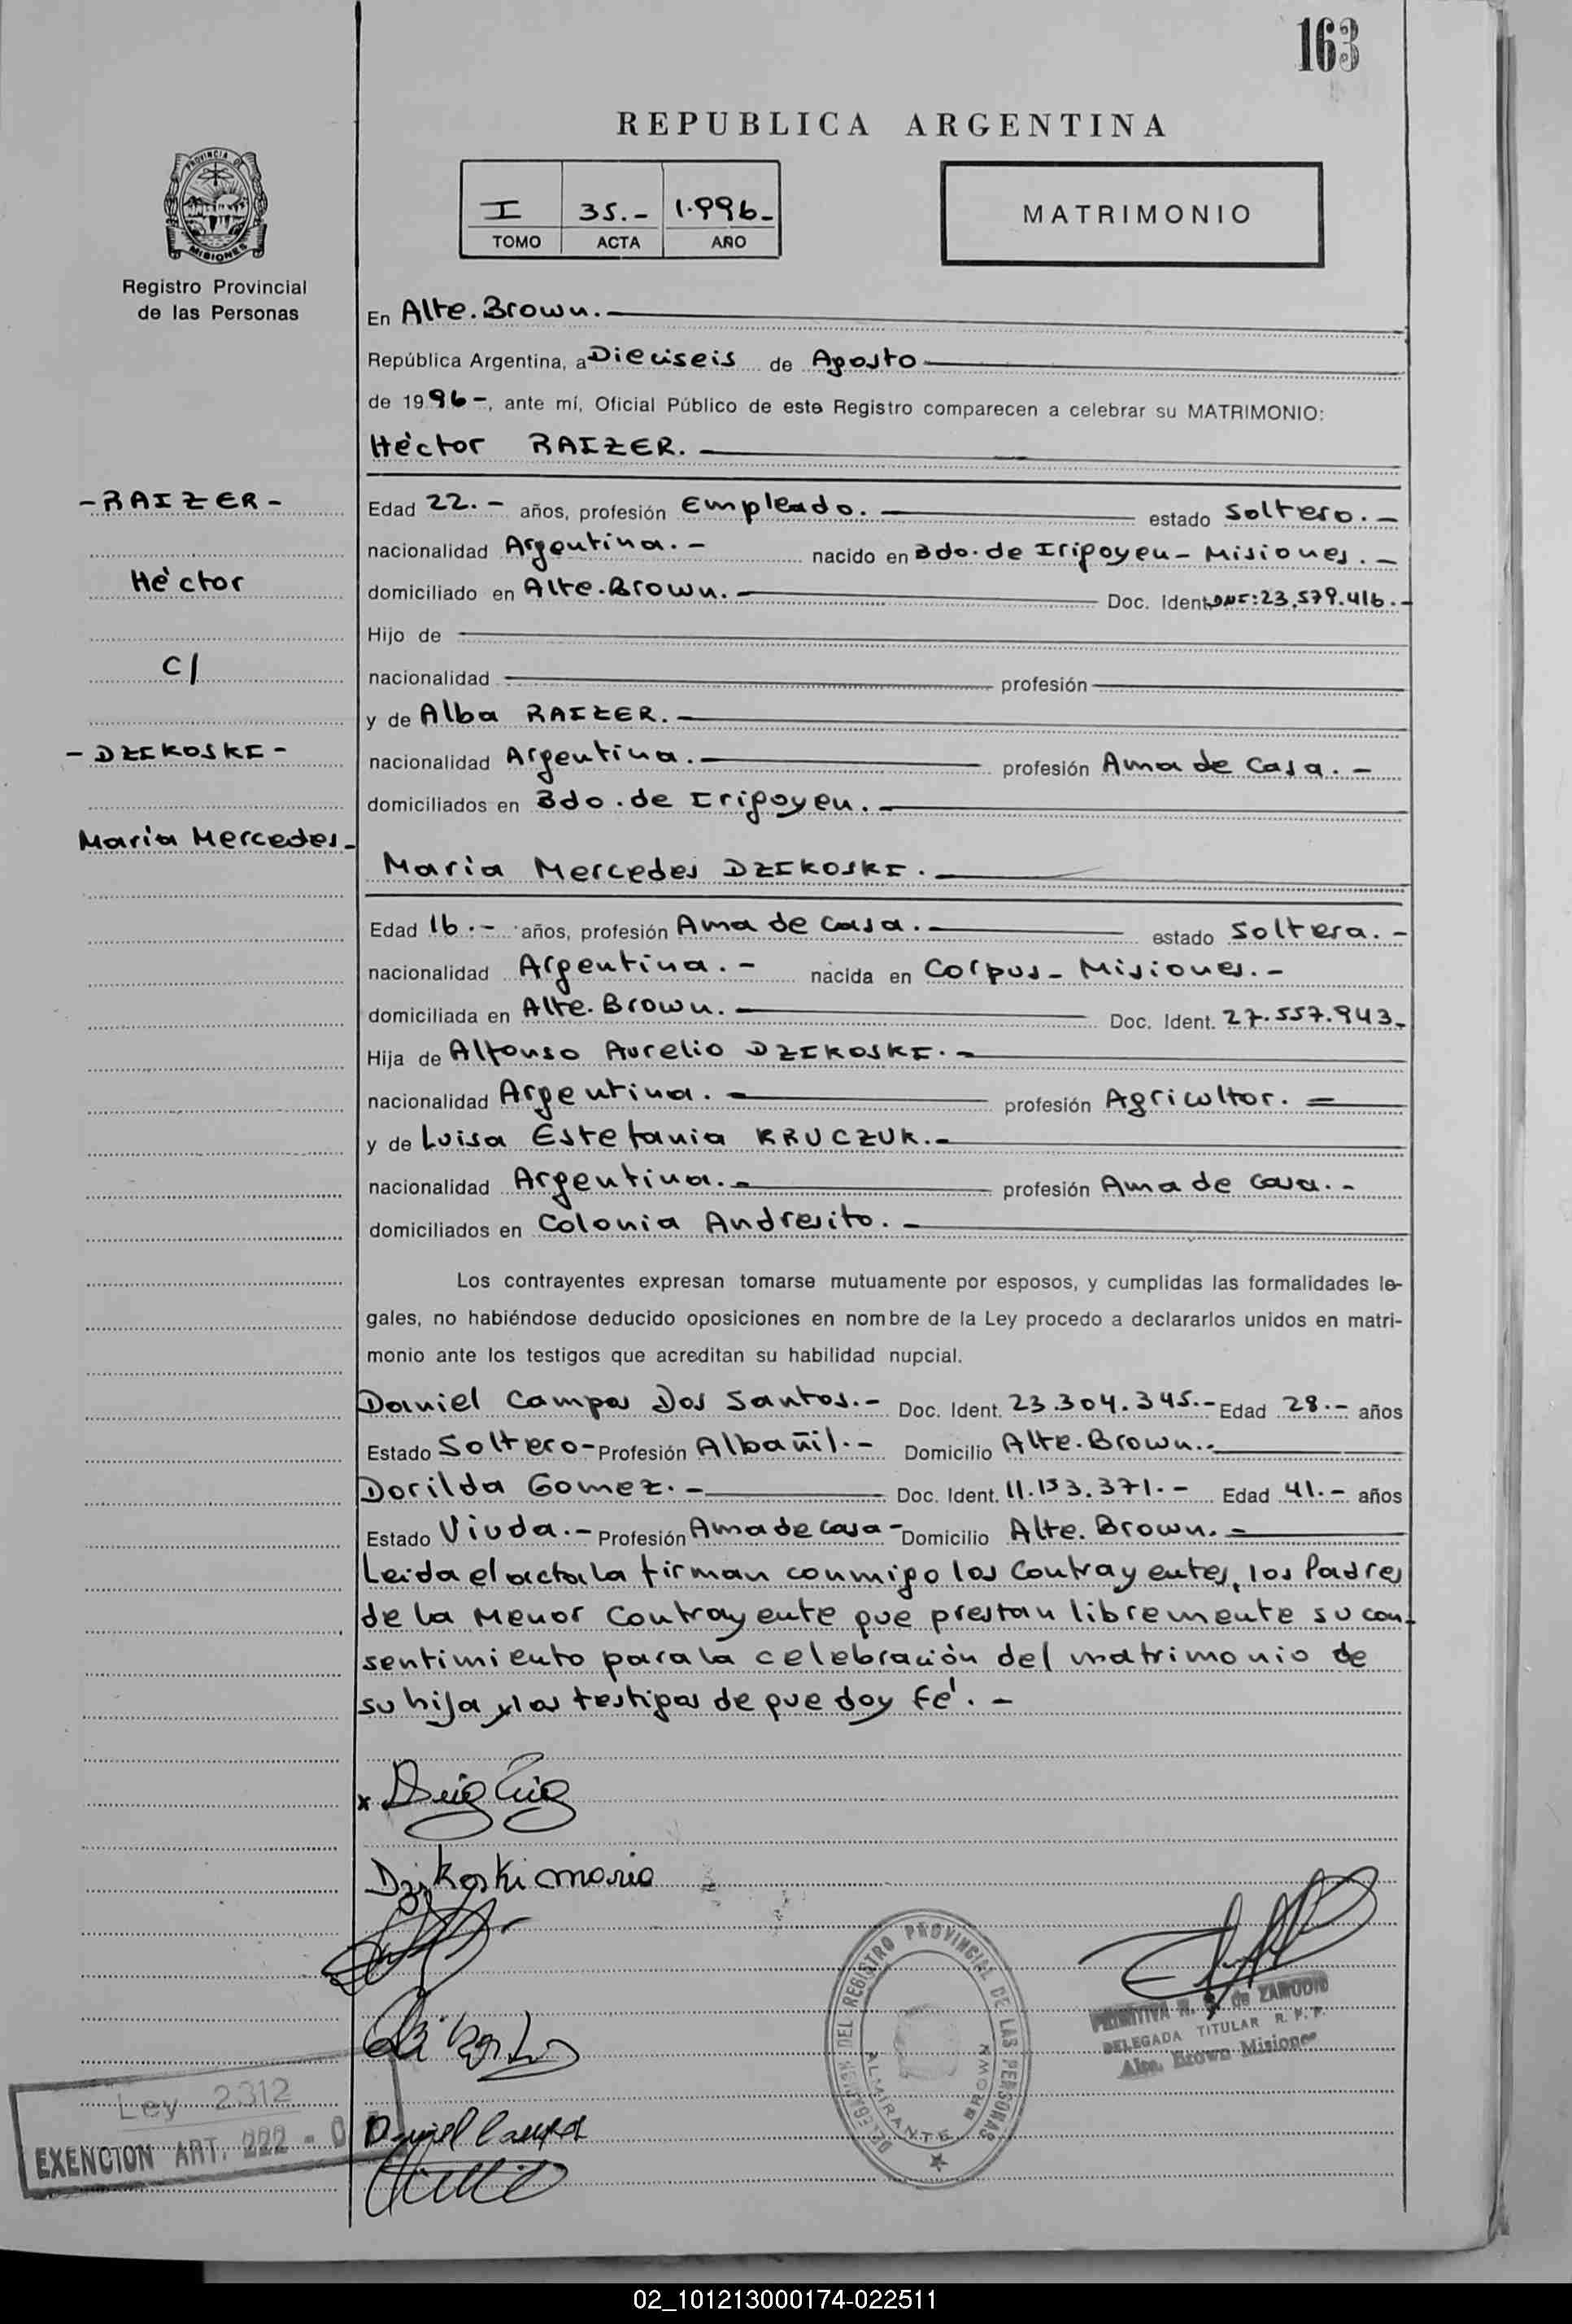 163
REPUBLICA ARGENTINA
PROVINCIA DE
MISIONES
Registro Provincial
de las Personas
I 35.- 1.996-
TOMO ACTA AÑO
MATRIMONIO
En Alte. Brown.
República Argentina, a Dieciseis de Agosto
de 1996-, ante mí, Oficial Público de este Registro comparecen a celebrar su MATRIMONIO:
Héctor RAIZER.
-RAIZER-
Héctor
C/
-DZIKOSKI-
Maria Mercedes-
Edad 22.- años, profesión Empleado. estado Soltero.-
nacionalidad Argentina.- nacido en Bdo. de Iripoyen- Misiones.-
domiciliado en Alte. Brown. Doc. Ident DNI:23.579.416.-
Hijo de
nacionalidad profesión
y de Alba RAIZER.-
nacionalidad Argentina.- profesión Ama de Casa.-
domiciliados en Bdo. de Iripoyen.-
Maria Mercedes DZIKOSKI.-
Edad 16.- años, profesión Ama de Casa.- estado Soltera.-
nacionalidad Argentina.- nacida en Corpus- Misiones.-
domiciliada en Alte. Brown.- Doc. Ident. 27.557.943-
Hija de Alfonso Aurelio DZIKOSKI.-
nacionalidad Argentina.- profesión Agricultor.-
y de Luisa Estefania KRUCZUK.-
nacionalidad Argentina.- profesión Ama de Casa.-
domiciliados en Colonia Andresito.-
Los contrayentes expresan tomarse mutuamente por esposos, y cumplidas las formalidades le-
gales, no habiéndose deducido oposiciones en nombre de la Ley procedo a declararlos unidos en matri-
monio ante los testigos que acreditan su habilidad nupcial.
Daniel Campos Dos Santos.- Doc. Ident. 23.304.345.- Edad 28.- años
Estado Soltero- Profesión Albañil.- Domicilio Alte. Brown.-
Dorilda Gomez.- Doc. Ident. 11.153.371.- Edad 41.- años
Estado Viuda.- Profesión Ama de Casa- Domicilio Alte. Brown.-
Leida el acta la firman conmigo los Contrayentes, los Padres
de la Menor Contrayente que prestan libremente su con-
sentimiento para la celebración del matrimonio de
su hija y los testigos de que doy Fé.-
x
Dzikoski maria
Daniel Campos
DELEGACION DEL REGISTRO PROVINCIAL DE LAS PERSONAS
ALMIRANTE BROWN
PRIMITIVA R. de ZAMUDIO
DELEGADA TITULAR R. P. P.
Alte. Brown Misiones
Ley 2312
EXENCION ART. 222 - 0
02_101213000174-022511